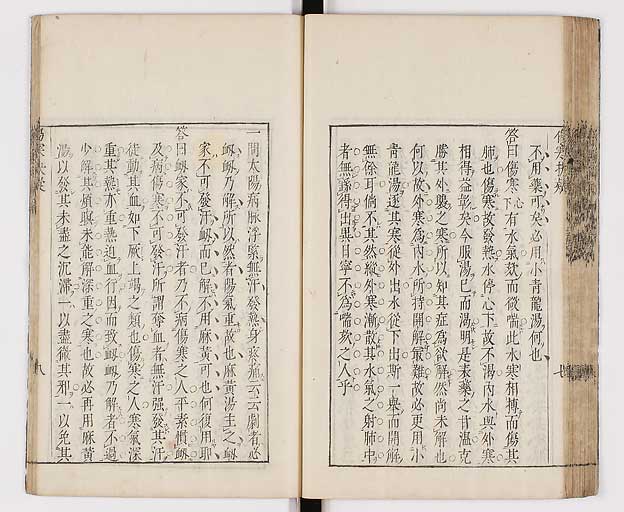 不用藥可矣必用小青龍湯何也
答曰傷寒心下有水氣欬而微喘此水寒相搏而傷其
肺也傷寒故發熱水停心下故不渴內水與外寒
相得益彰矣今服湯已而渴明是表藥之甘溫克
勝其外襲之寒所以知其症爲欲解然尚未解也
何以故外寒爲內水所持開解最難故必更用小
青龍湯逐其寒從外出水從下出斯一舉而開解
無餘耳倘不其然縱外寒漸散其水氣之射肺中
者無繇得出異日寧不爲喘欬之人乎
一問太陽病脉浮緊無汗發熱身疼痛云云劇者必
衂衂乃解所以然者陽氣重故也麻黃湯主之衂
家不可發汗衂而已解不用麻黃可也何復用耶
答曰衂家不可發汗者乃不病傷寒之人平素慣衂
及病傷寒不可發汗所謂奪血者無汗强發其汗
徒動其血如下厥上竭之類也傷寒之人寒氣深
重其熱亦重熱迫血行因而致衂衂乃解者不過
少解其煩瞑未能解深重之寒也故必再用麻黃
湯以發其未盡之沉滯一以盡徹其邪一以免其
八